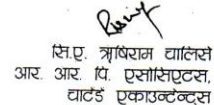 सि.ए. ऋषिराम वाग्लि
आर. आर. पि. एसोसिएटस,
चार्टर्ड एकाउन्टेन्टस